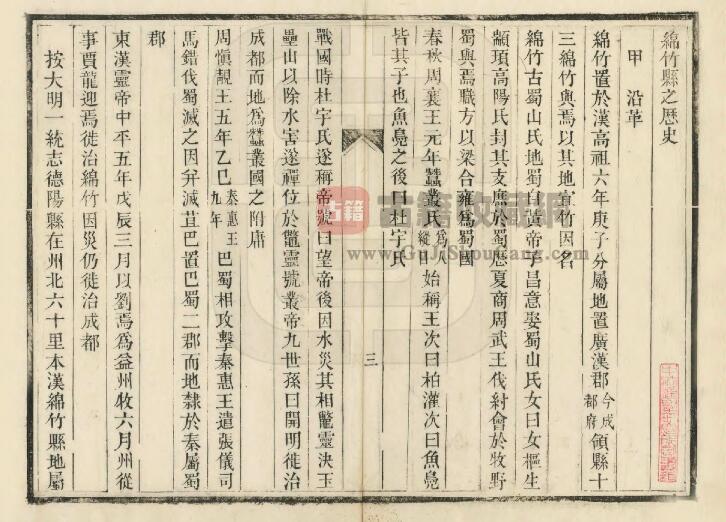 綿竹縣之歷史
甲 沿革
綿竹置於漢高祖六年庚子分屬地置廣漢郡今成都府領縣十
三綿竹與焉以其地宜竹因名
綿竹古蜀山氏地蜀自黃帝子昌意娶蜀山氏女曰女樞生
顓頊高陽氏封其支庶於蜀歷夏商周武王伐紂會於牧野
蜀與焉職方以梁合雍爲蜀國
春秋周襄王元年蠶叢氏爲人縱目始稱王次曰柏灌次曰魚鳧
皆其子也魚鳧之後曰杜宇氏
三
戰國時杜宇氏遂稱帝號曰望帝後因水災其相鼈靈決玉
壘山以除水害遂禪位於鼈靈號叢帝九世孫曰開明徙治
成都而地爲蠶叢國之附庸
周愼靚王五年乙巳秦惠王九年巴蜀相攻擊秦惠王遣張儀司
馬錯伐蜀滅之因幷滅苴巴置巴蜀二郡而地隸於秦屬蜀
郡
東漢靈帝中平五年戊辰三月以劉焉爲益州牧六月州從
事賈龍迎焉徙治綿竹因災仍徙治成都
按大明一統志德陽縣在州北六十里本漢綿竹縣地屬
古籍 古籍收藏网
www.GuJiShouCang.com